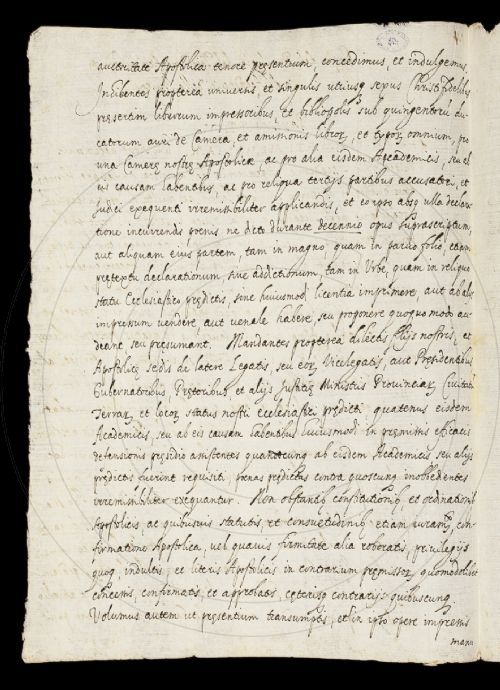 auctoritate Apostolica tenore presentium, concedimus, et indulgemus,
Inhibentes propterea universis, et singulis utriusq sexus Christifidelibus
presertim librorum impressoribus, et bibliopolis sub quingentorũ du-
catorum auri de Camera, et amissionis libror, et typor omnium, pro
una Camere nostre Apostolice ac pro alia eisdem Academicis, seu ab
eis causam habentibus, ac pro reliqua tertijs partibus accusatori, et
Judici exequenti irremissibiliter applicandis, et eo ipso absq ulla declara-
tione incurrendis penis ne dicto durante decennio opus suprascriptum,
aut aliquam eius partem, tam in magno quam in parvo folio, etiam
pretextu declarationum, sive addictionum, tam in Urbe, quam in reliquo
statu Ecclesiastico predictis, sine huiusmodi licentia imprimere, aut ab alijs
impressum vendere, aut venale habere, seu proponere quoquo modo au-
deant seu presumant. Mandantes propterea dilectis filijs nostris, et
Apostolice sedis de latere Legatis, seu eor Vicelegatis, aut Presidentibus
Gubernatoribus, Pretoribus et alijs Justitie Ministris Provinciar, Civitatu
Terrar, et locor status nostri ecclesiastici predicti quatenus eisdem
Academicis, seu ab eis causam habentibus huiusmodi in premissis efficacis
defensionis presidio assistentes quantocunq ab eisdem Academicis seu alijs
predictis fuerint requisiti, penas predictas contra quoscunq inobedientes
irremissibiliter exequantur. Non obstantib constitutionib, et ordinationib
Apostolicis ac quibusvis statutis, et consuetudinib etiam iuram, con-
firmatione Apostolica, vel quavis firmitate alia roboratis, privilegijs
quoq, indultis, et literis Apostolicis in contrarium premissor quomodolibet
concessis, confirmatis, et approbatis, ceterisq contrarijs quibuscunq
Volumus autem ut presentium transumptis, et in ipso opere impressis
manu